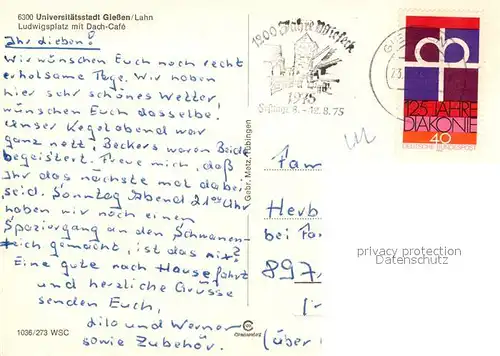 6300 Universitätsstadt Gießen/Lahn
Ludwigsplatz mit Dach-Café
Ihr Lieben!
Wir wünschen Euch noch recht
erholsame Tage. Wir haben
hier sehr schönes Wetter,
wünschen Euch dasselbe.
Unser Kegelabend war
ganz nett, Beckers waren Beide
begeistert. Freue mich, daß
Ihr das nächste mal dabei
seid. Sonntag Abend 21°° Uhr
haben wir noch einen
Spaziergang an den Schwanen-
teich gemacht, ist das nix?
Eine gute nach Hausefahrt
und herzliche Grüsse
senden Euch,
Lilo und Werner
sowie Zubehör.
1036/273 WSC
Gebr. Metz, Tübingen
1200 Jahre Wieseck
1975
Festtage 8. - 12.8.75
GIE
23.
125 JAHRE
DIAKONIE
40
DEUTSCHE BUNDESPOST
Fam
Herb
bei Fa
897
(über
privacy protection
Datenschutz